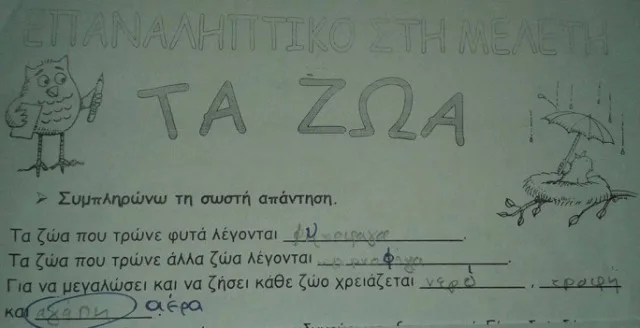 ΕΠΑΝΑΛΗΠΤΙΚΟ ΣΤΗ ΜΕΛΕΤΗ
ΤΑ ΖΩΑ
➢ Συμπληρώνω τη σωστή απάντηση.
Τα ζώα που τρώνε φυτά λέγονται φυτοφάγα.
Τα ζώα που τρώνε άλλα ζώα λέγονται.
Για να μεγαλώσει και να ζήσει κάθε ζώο χρειάζεται νερό, τροφή
και αγάπη αέρα